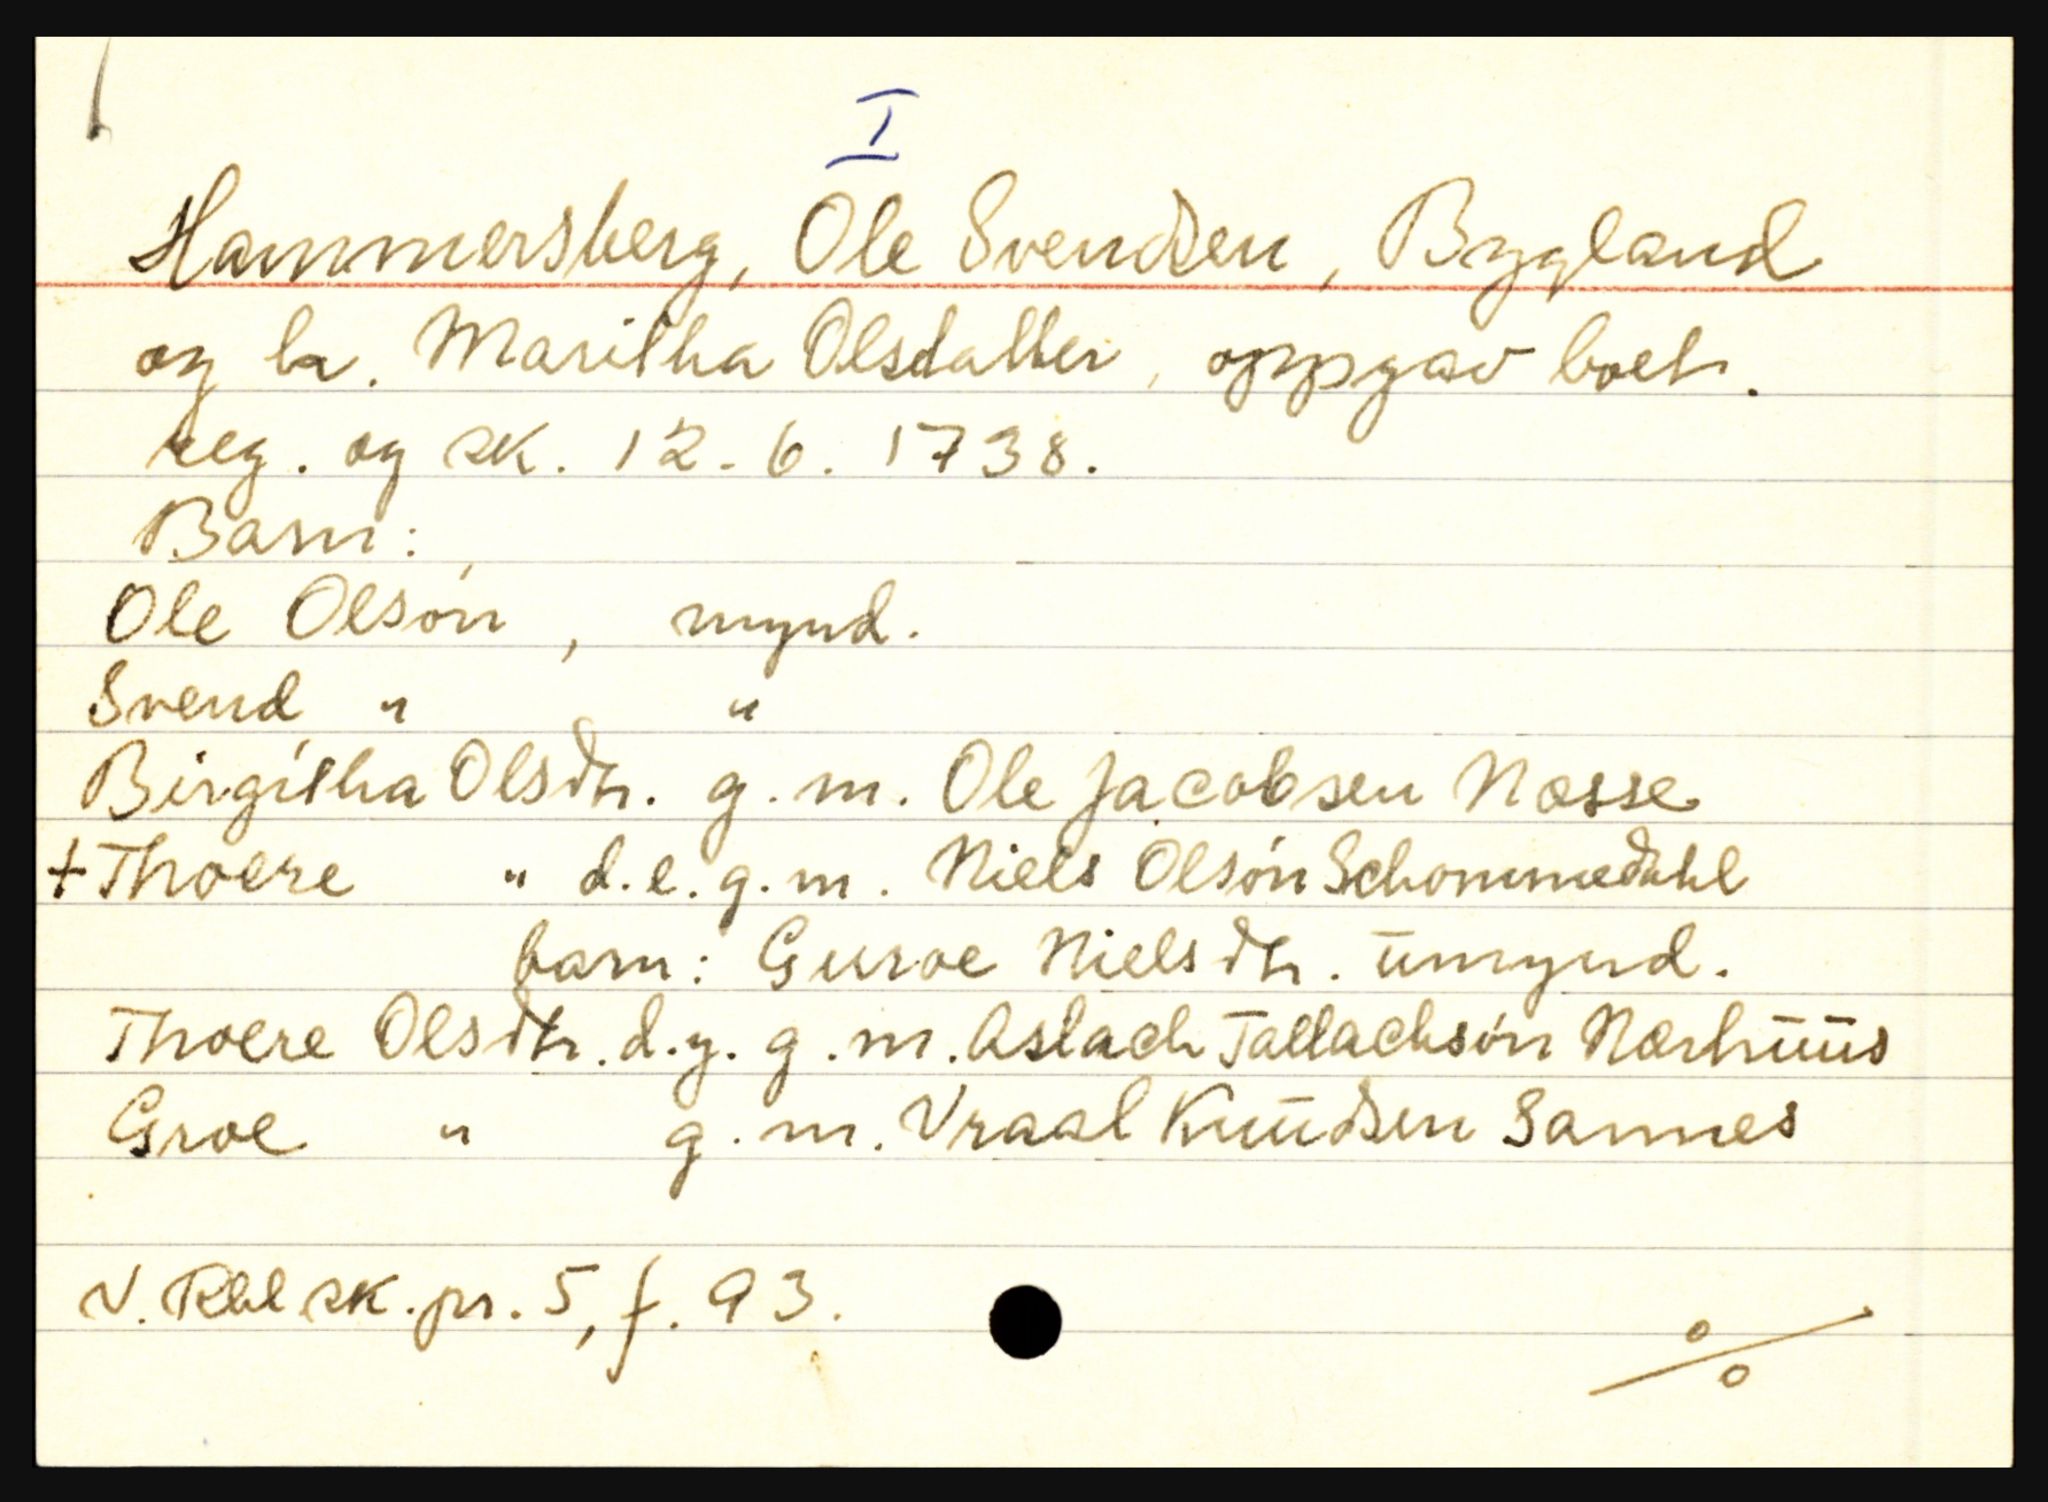 I
Hammersberg, Ole Svendsen, Bygland
og h. Maritha Olsdatter, oppgav boet.
reg. og sk. 12.6.1738.
Barn:
Ole Olsón, mynd.
Svend " "
Birgitha Olsdtr. g.m. Ole Jacobsen Næsse
+ Thoere " d.e.g.m. Niels Olsón Schommedahl
barn: Guroe Nielsdtr. ūmynd.
Thoere Olsdtr. d.y. g.m. Aslach Tallachsón Nærhūūs
Groe " g.m. Vraal Knūdsen Sannes
V. Rbl sk.pr. 5, f. 93.
%